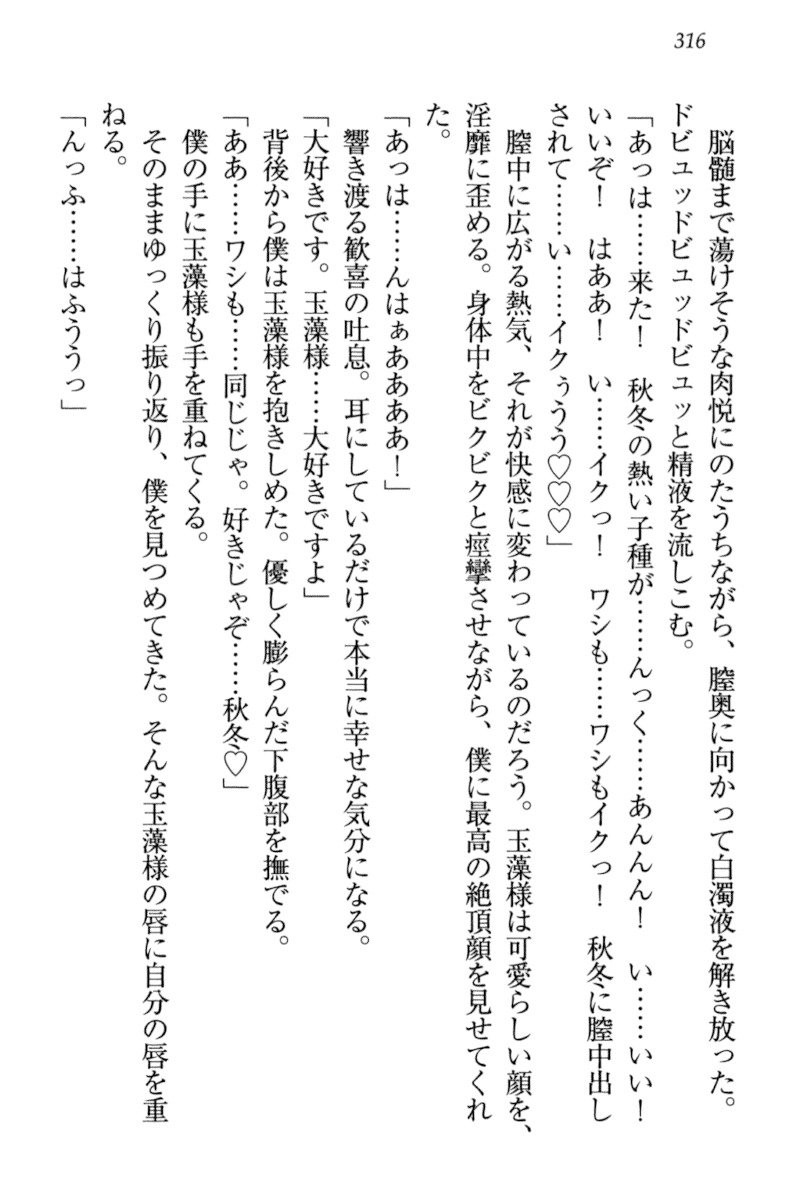 316
脳髄まで蕩けそうな肉悦にのたうちながら、膣奥に向かって白濁液を解き放った。
ドビュッドビュッドビュッと精液を流しこむ。
「あっは……来た！　秋冬の熱い子種が……んっく……あんんん！　い……いい！
いいぞ！　はああ！　い……イクっ！　ワシも……ワシもイクっ！　秋冬に膣中出し
されて……い……イクぅうう♡♡♡」
膣中に広がる熱気、それが快感に変わっているのだろう。玉藻様は可愛らしい顔を、
淫靡に歪める。身体中をビクビクと痙攣させながら、僕に最高の絶頂顔を見せてくれ
た。
「あっは……んはぁああああ！」
響き渡る歓喜の吐息。耳にしているだけで本当に幸せな気分になる。
「大好きです。玉藻様……大好きですよ」
背後から僕は玉藻様を抱きしめた。優しく膨らんだ下腹部を撫でる。
「ああ……ワシも……同じじゃ。好きじゃぞ……秋冬♡」
僕の手に玉藻様も手を重ねてくる。
そのままゆっくり振り返り、僕を見つめてきた。そんな玉藻様の唇に自分の唇を重
ねる。
「んっふ……はふううっ」